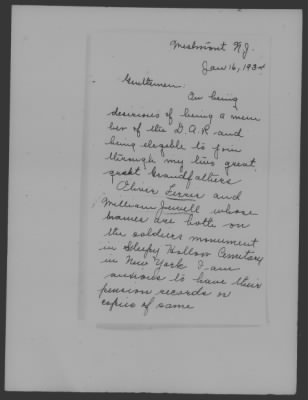 Westmont N.J.
Jan 16, 1934
Gentlemen:
Am being
desirious of being a mem
ber of the D.A.R and
being elegable to join
through my two great
great Grandfathers
Oliver Ferris and
William Jewell whose
names are both on
the soldiers monument
in Sleepy Hollow Cemetary
in New York I am
anxious to have their
pension records or
copies of same